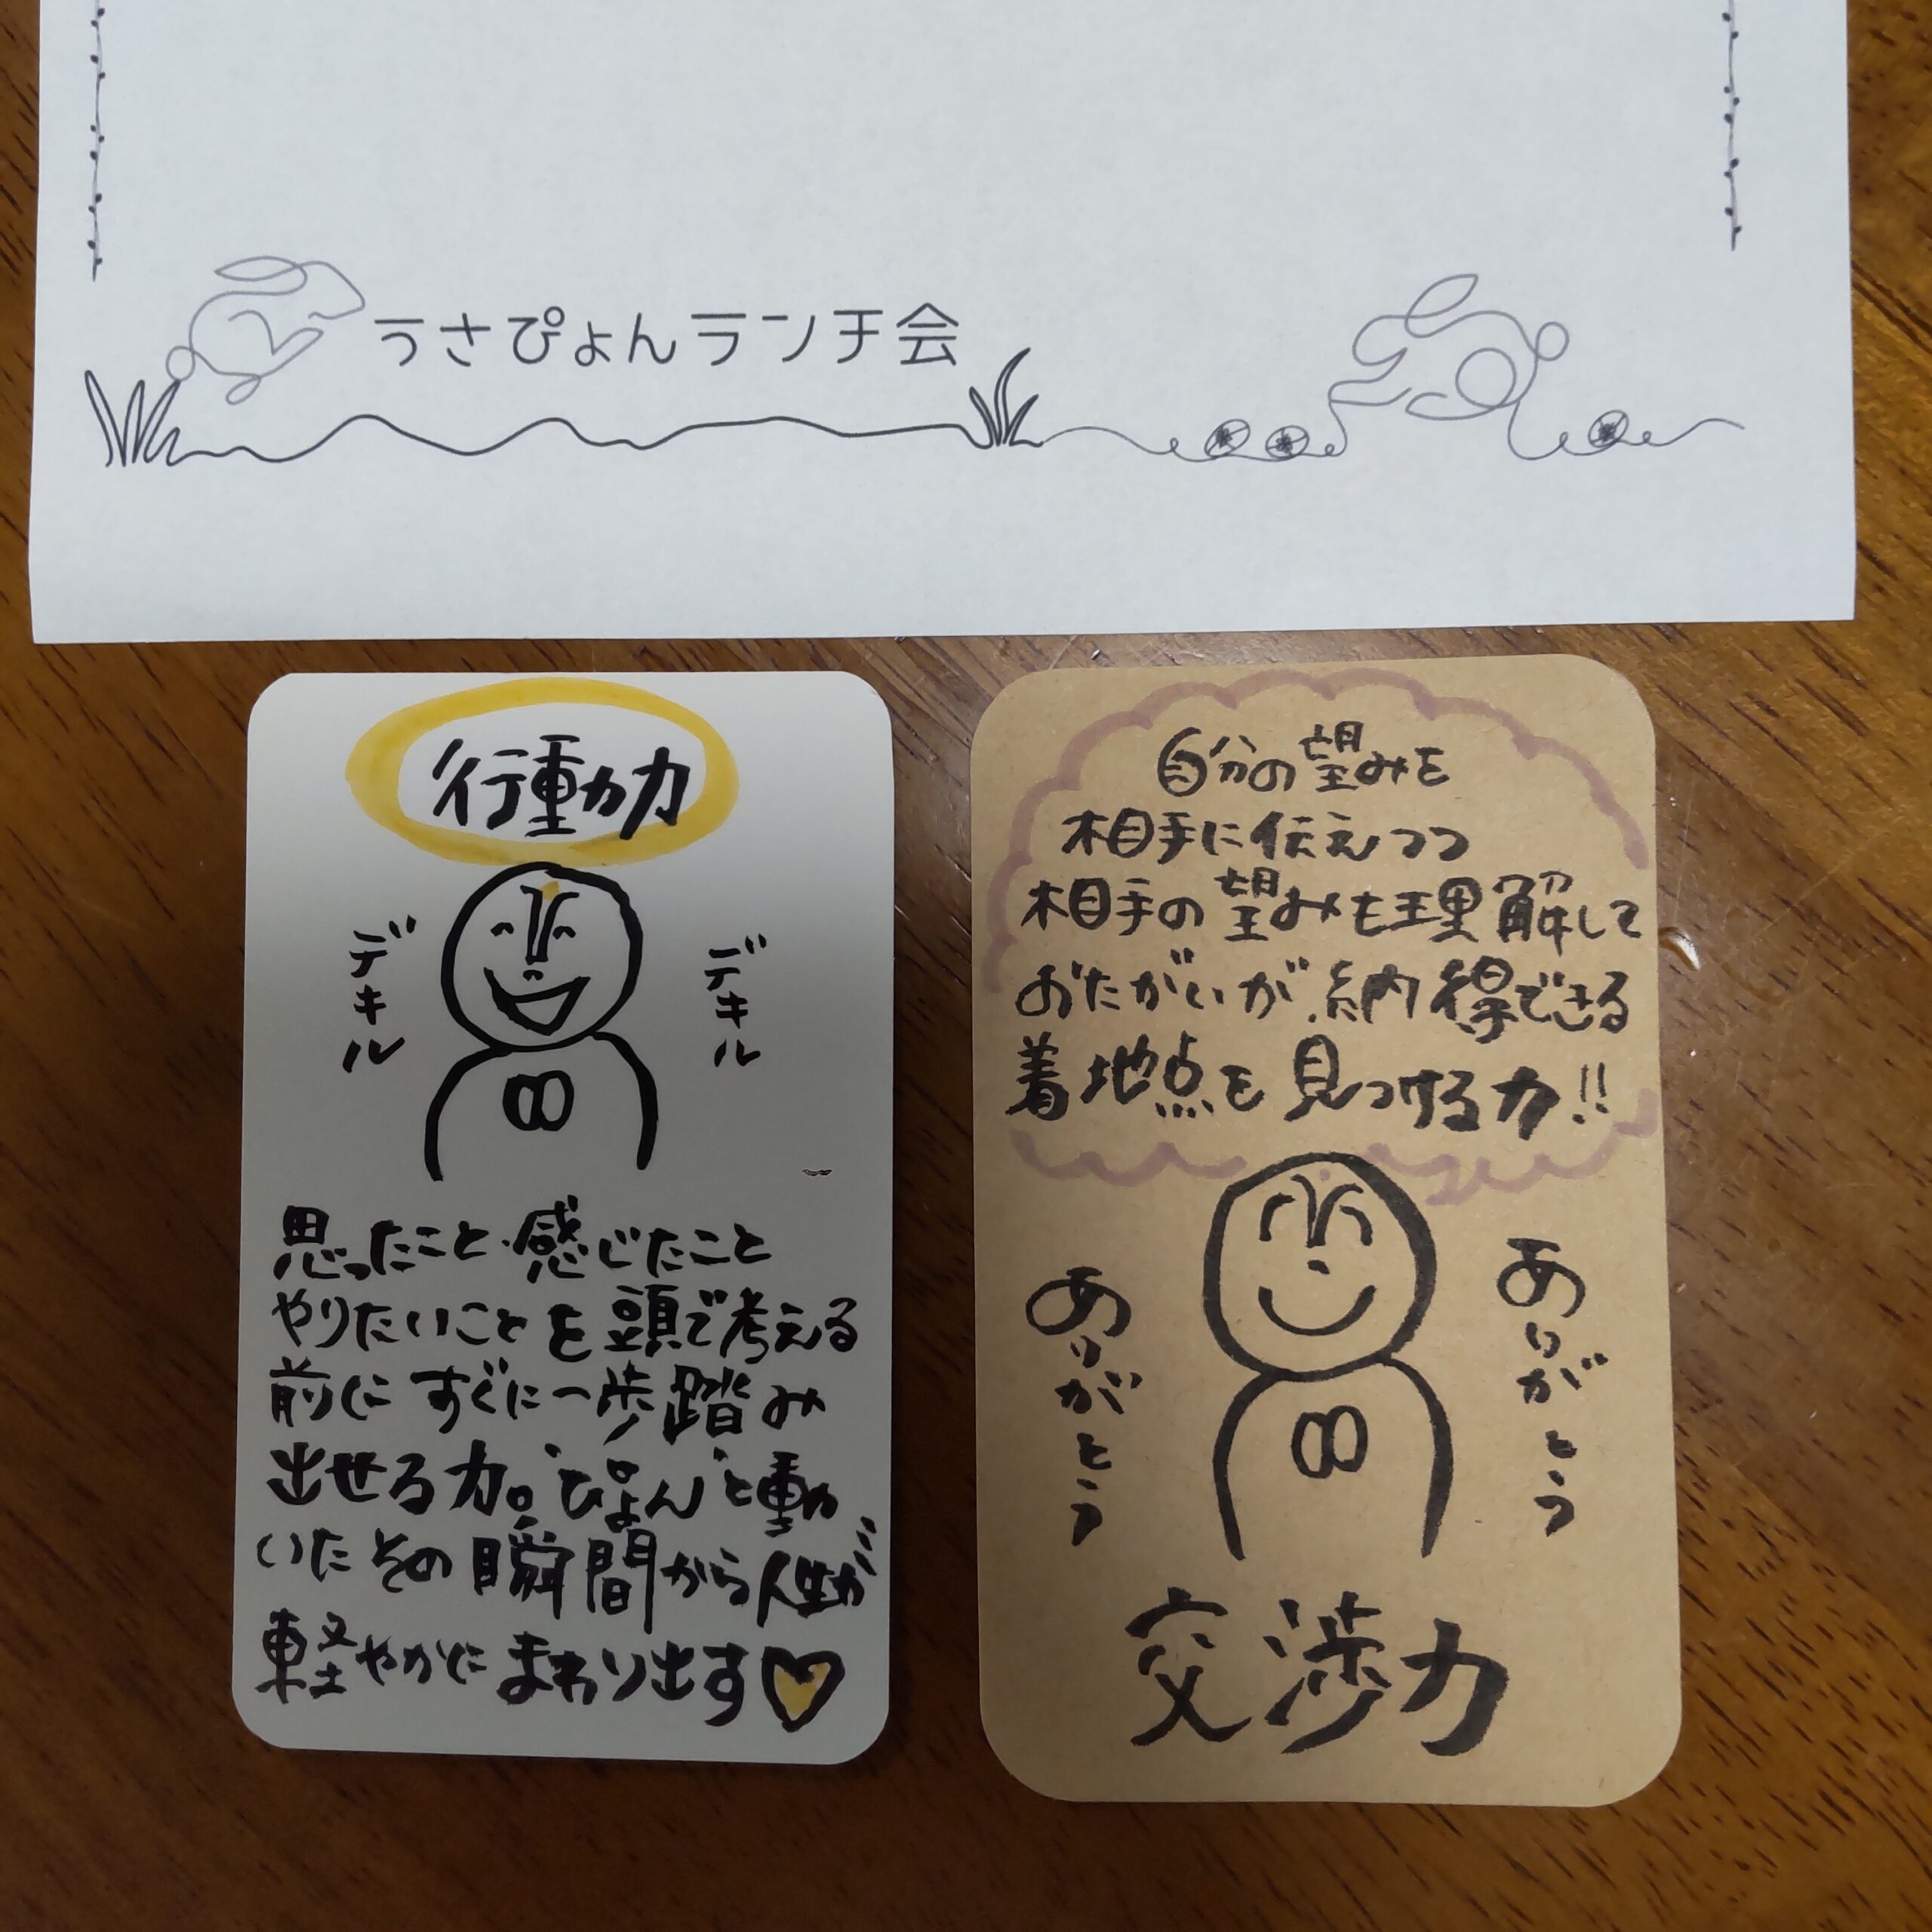 うさぴょんランチ会
行動力
デキル
デキル
思ったこと・感じたこと
やりたいことを頭で考える
前にすぐに一歩踏み
出せる力。“ぴょん”と動
いたその瞬間から人生が
軽やかにまわり出す
自分の望みを
相手に伝えつつ
相手の望みも理解して
おたがいが納得できる
着地点を見つける力!!
ありがとう
ありがとう
交渉力